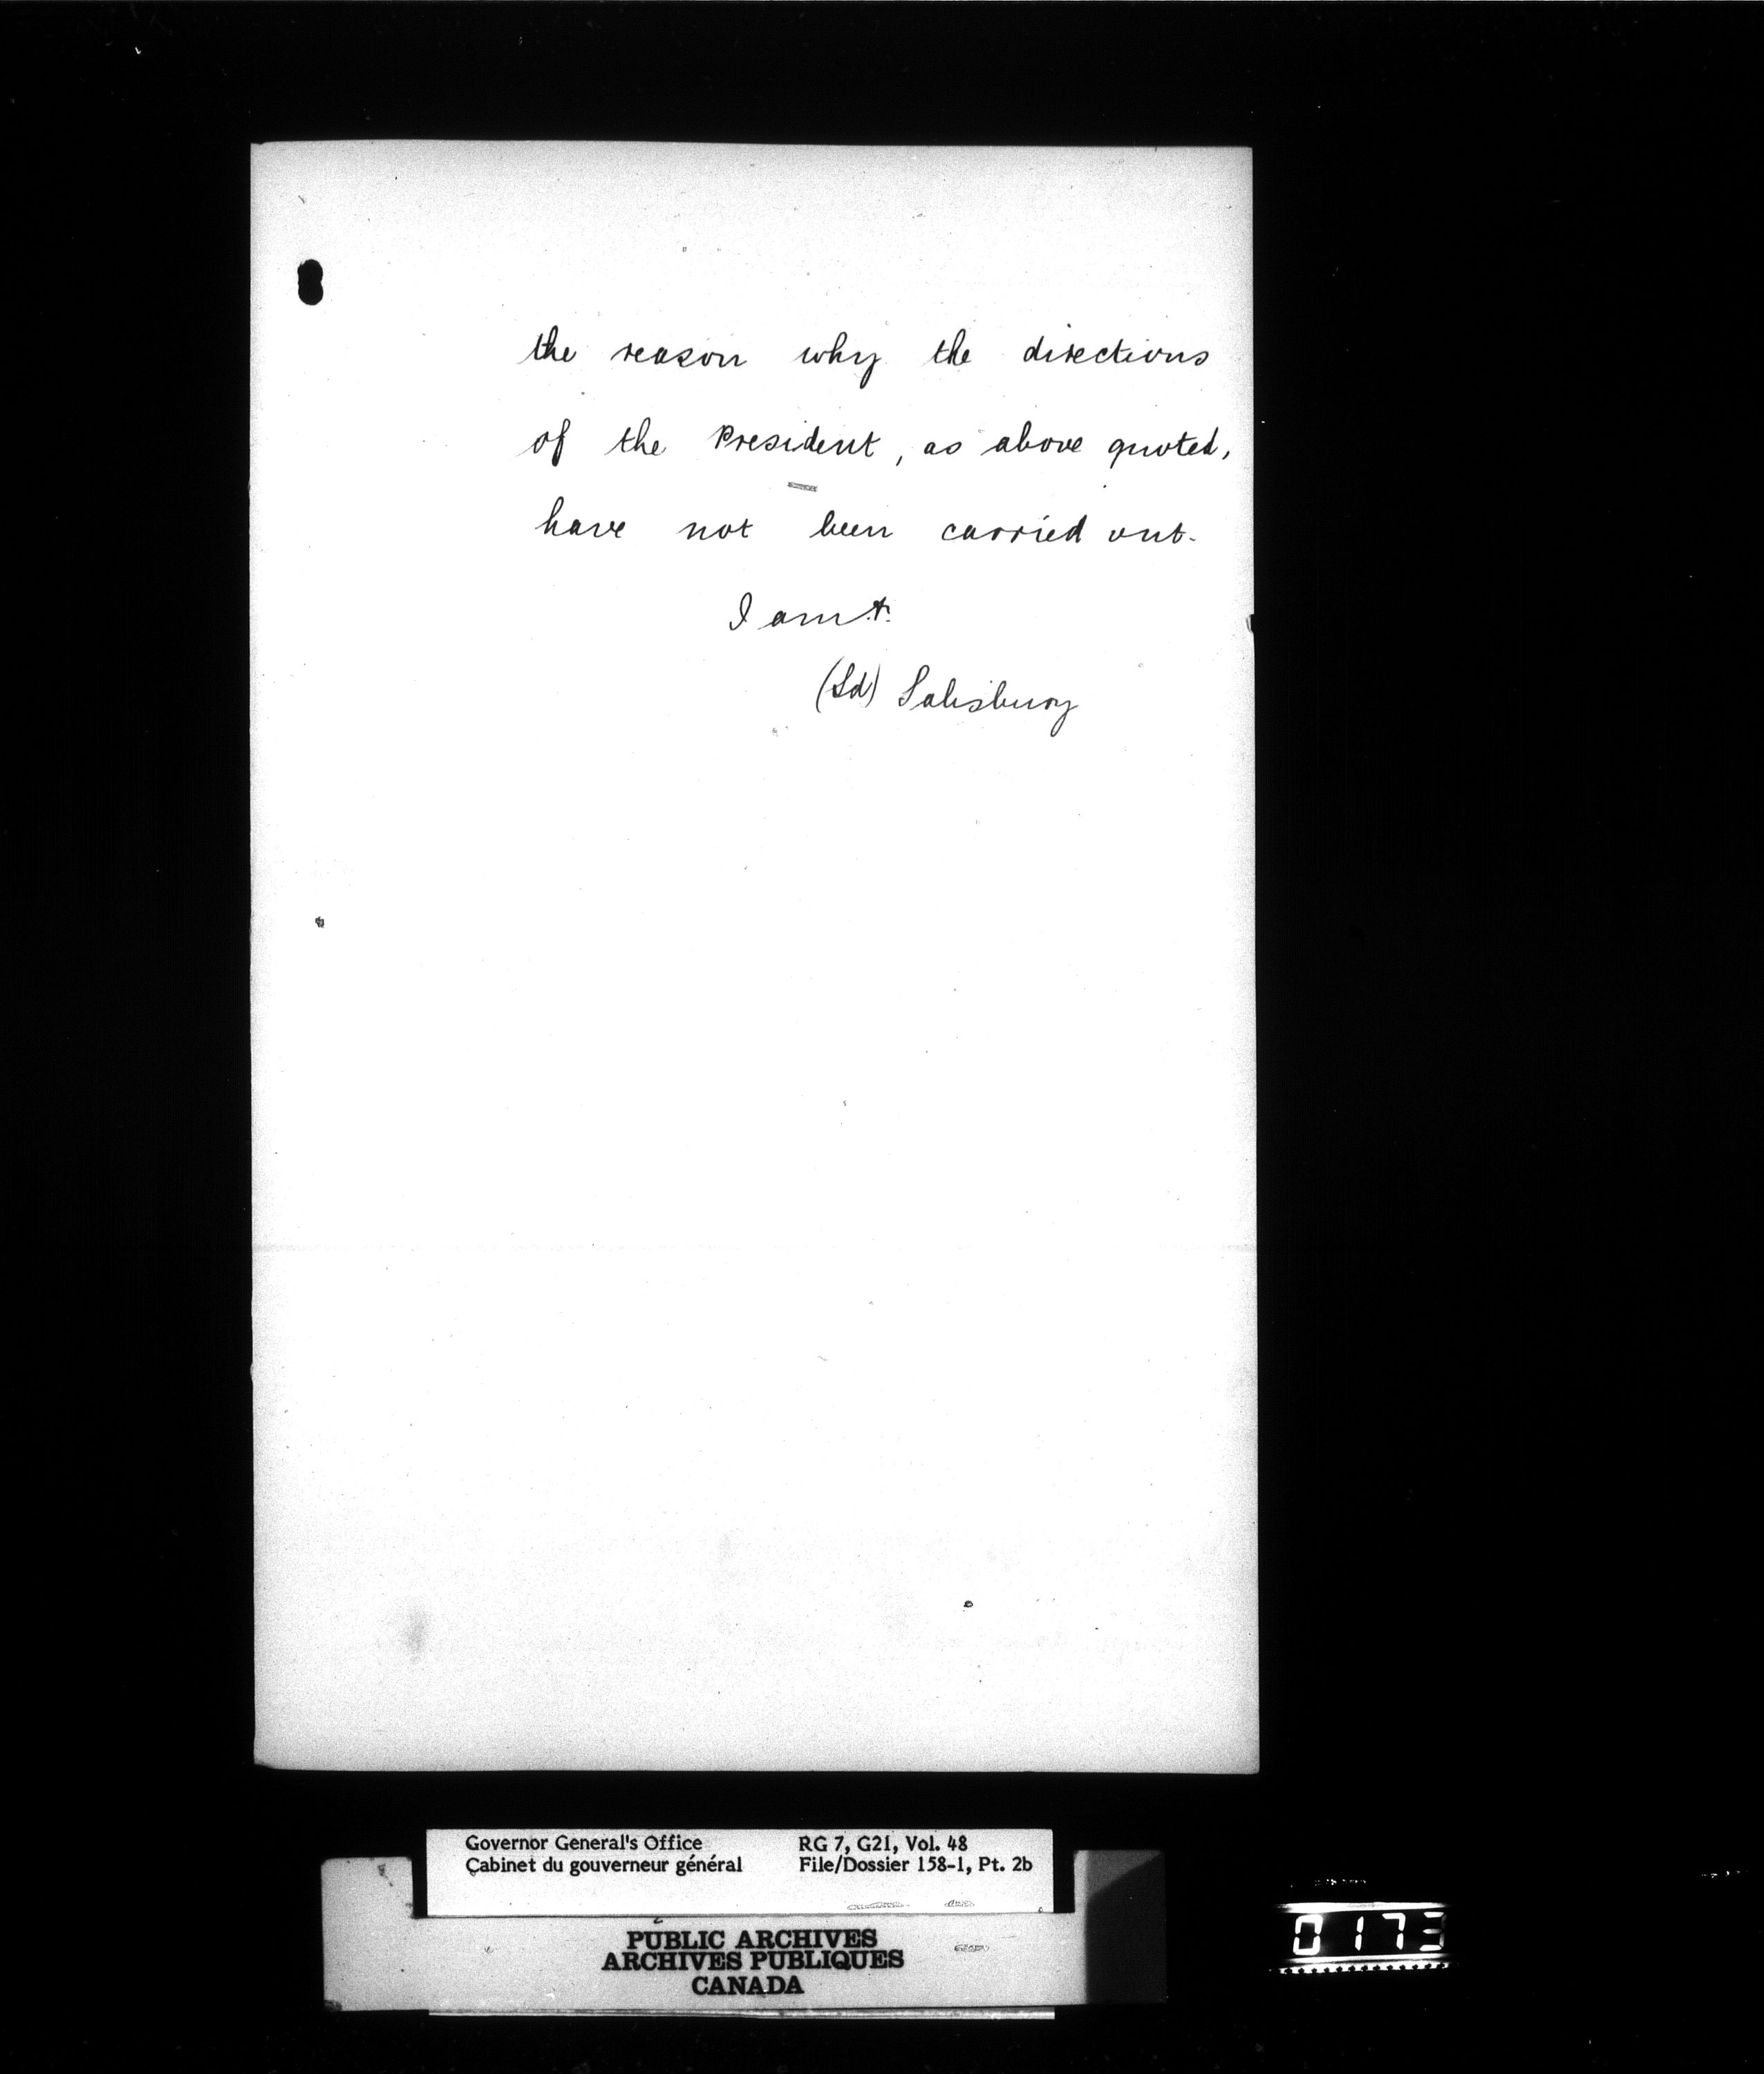 the reason why the directions
of the President, as above quoted,
have not been carried out.
I am &.
(Sd) Salisbury
Governor General's Office
Cabinet du gouverneur général
RG 7, G21, Vol. 48
File/Dossier 158-1, Pt. 2b
PUBLIC ARCHIVES
ARCHIVES PUBLIQUES
CANADA
0173